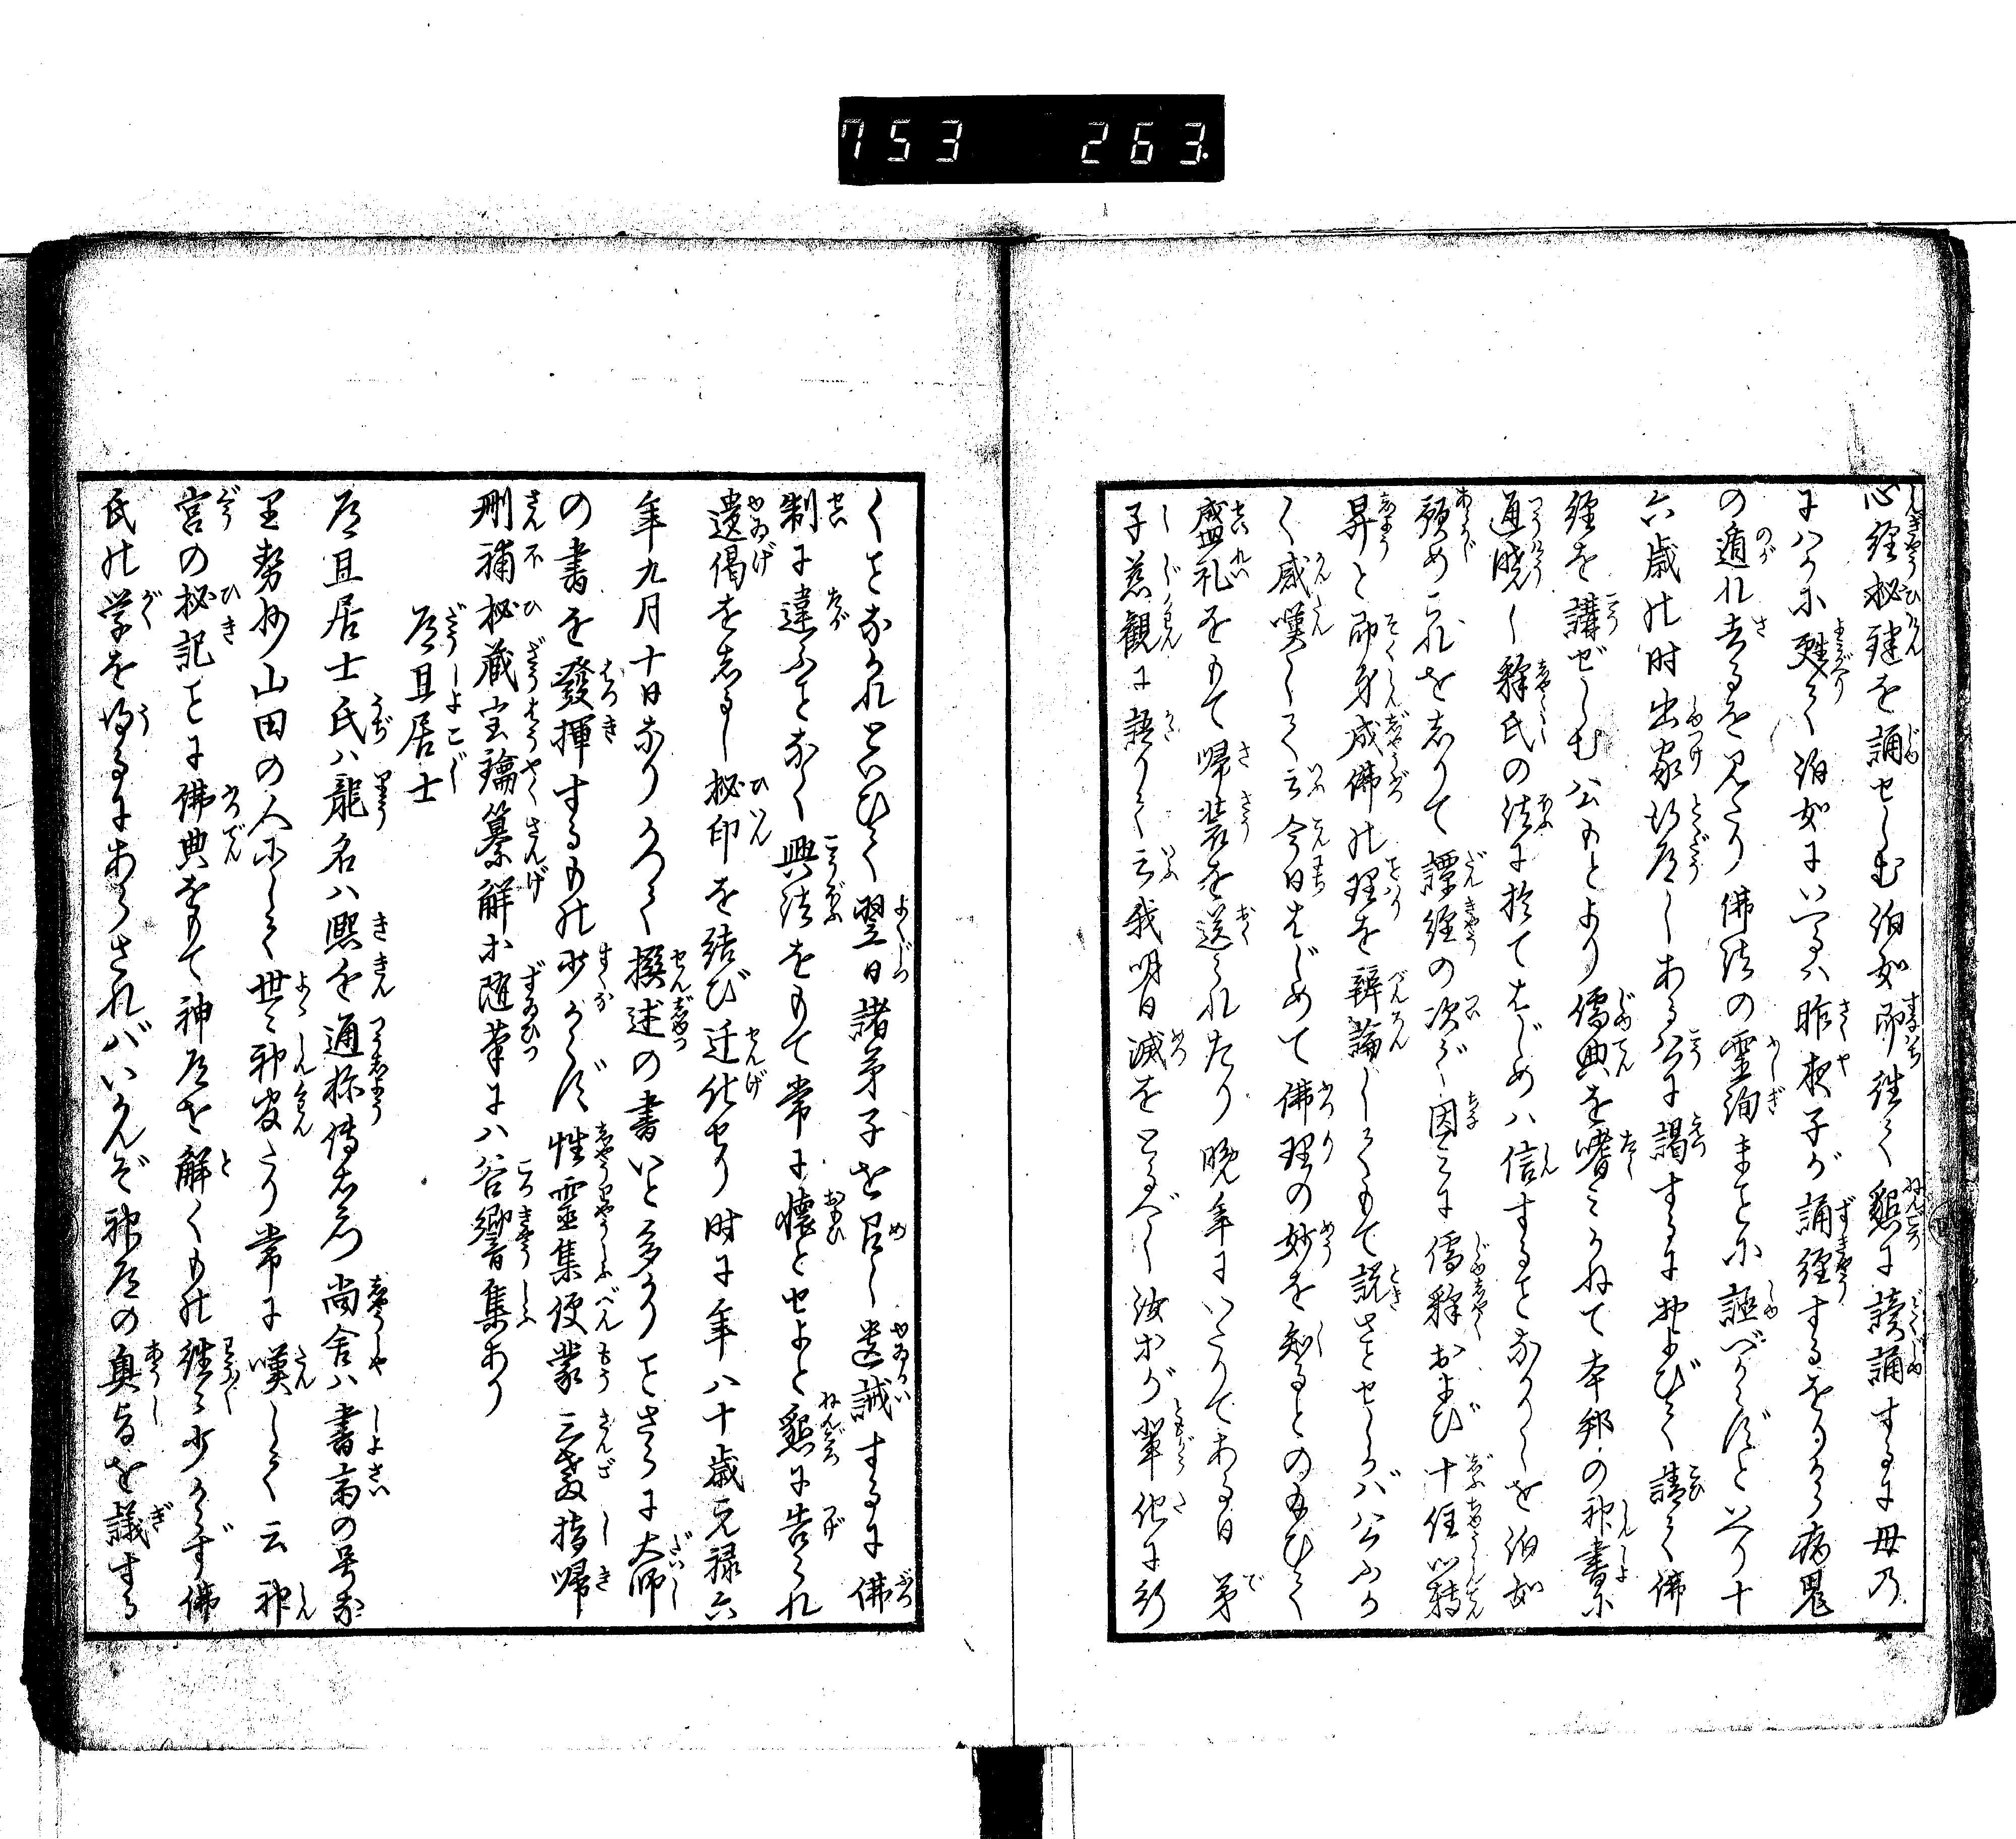 753 263.
心経秘鍵を誦せしむ泊如即往て懇に読誦するに母乃
にハかに甦りて泊如にいへるハ昨夜子が誦経するをきゝ病鬼
の遁れ去るを見たり佛法の霊詢まことに誣べからずといへり十
六歳の时出家得度しある公に謁するにおよびて請て佛
経を講ぜしむ公もとより儒典を嗜みかねて本邦の神書に
通暁し釈氏の法に於てはじめハ信することなかりしを泊如
預めこれをしりて譚経の次で因みに儒釈および十住心転
昇と即身成佛の理を辯論してもて説ことせしかバ公ふか
く感嘆して云今日はじめて佛理の妙を知るとのたまひて
盛礼をもて帰装を送られたり晩年にいたりてある日第
子慈観に語りて云我明日滅をとるべし汝等が輩他に行
くことなかれといひて翌日諸弟子を召し遺誡するに佛
制に違ふことなく興法をもて常に懐とせよと懇に告られ
遺偈をしるし秘印を結び迁化せり时に年八十歳元禄六
年九月十日なりかつて撰述の書いと多かりことさらに大师
の書を發揮するもの少からず性霊集便蒙三教指帰
刪補秘蔵宝鑰纂解等随筆にハ谷響集あり
居士
居士氏ハ龍名ハ熙を通称傳右衛門尚舎ハ書斎の号なり
勢抄山田の人にして世々神官たり常に嘆して云神
宮の秘記ことに佛典をもて神道を解くもの往々少からず佛
氏の学を得るにあらざれバいかんぞ神道の奥旨を議する